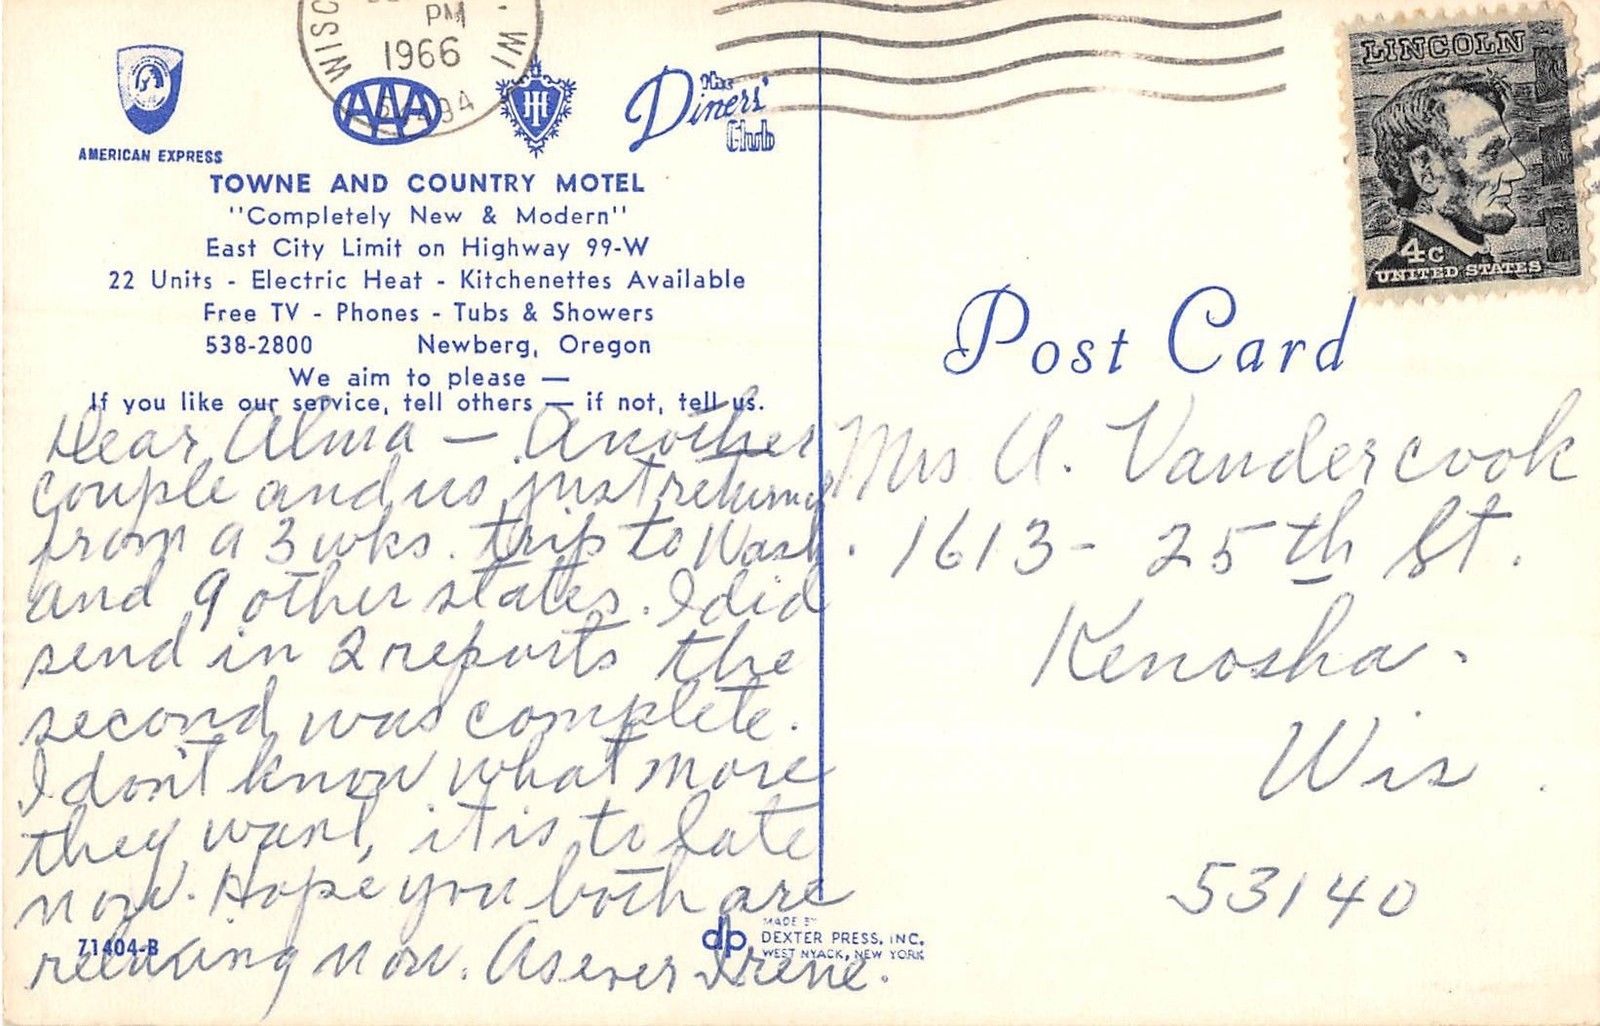 WISC
PM
1966
WI
AAA
The
Diners'
Club
AMERICAN EXPRESS
TOWNE AND COUNTRY MOTEL
"Completely New & Modern"
East City Limit on Highway 99-W
22 Units - Electric Heat - Kitchenettes Available
Free TV - Phones - Tubs & Showers
538-2800 Newberg, Oregon
We aim to please —
If you like our service, tell others — if not, tell us.
Dear Alma — Another
couple and us just returned
from a 3 wks. trip to Wash.
and 9 other states. I did
send in 2 reports the
second was complete.
I don't know what more
they want, it is to late
now. Hope you both are
relaxing now. As ever Irene.
71404-B
LINCOLN
4c
UNITED STATES
Post Card
Mrs A. Vandercook
1613 - 25th St.
Kenosha.
Wis.
53140
dp
MADE BY
DEXTER PRESS, INC.
WEST NYACK, NEW YORK